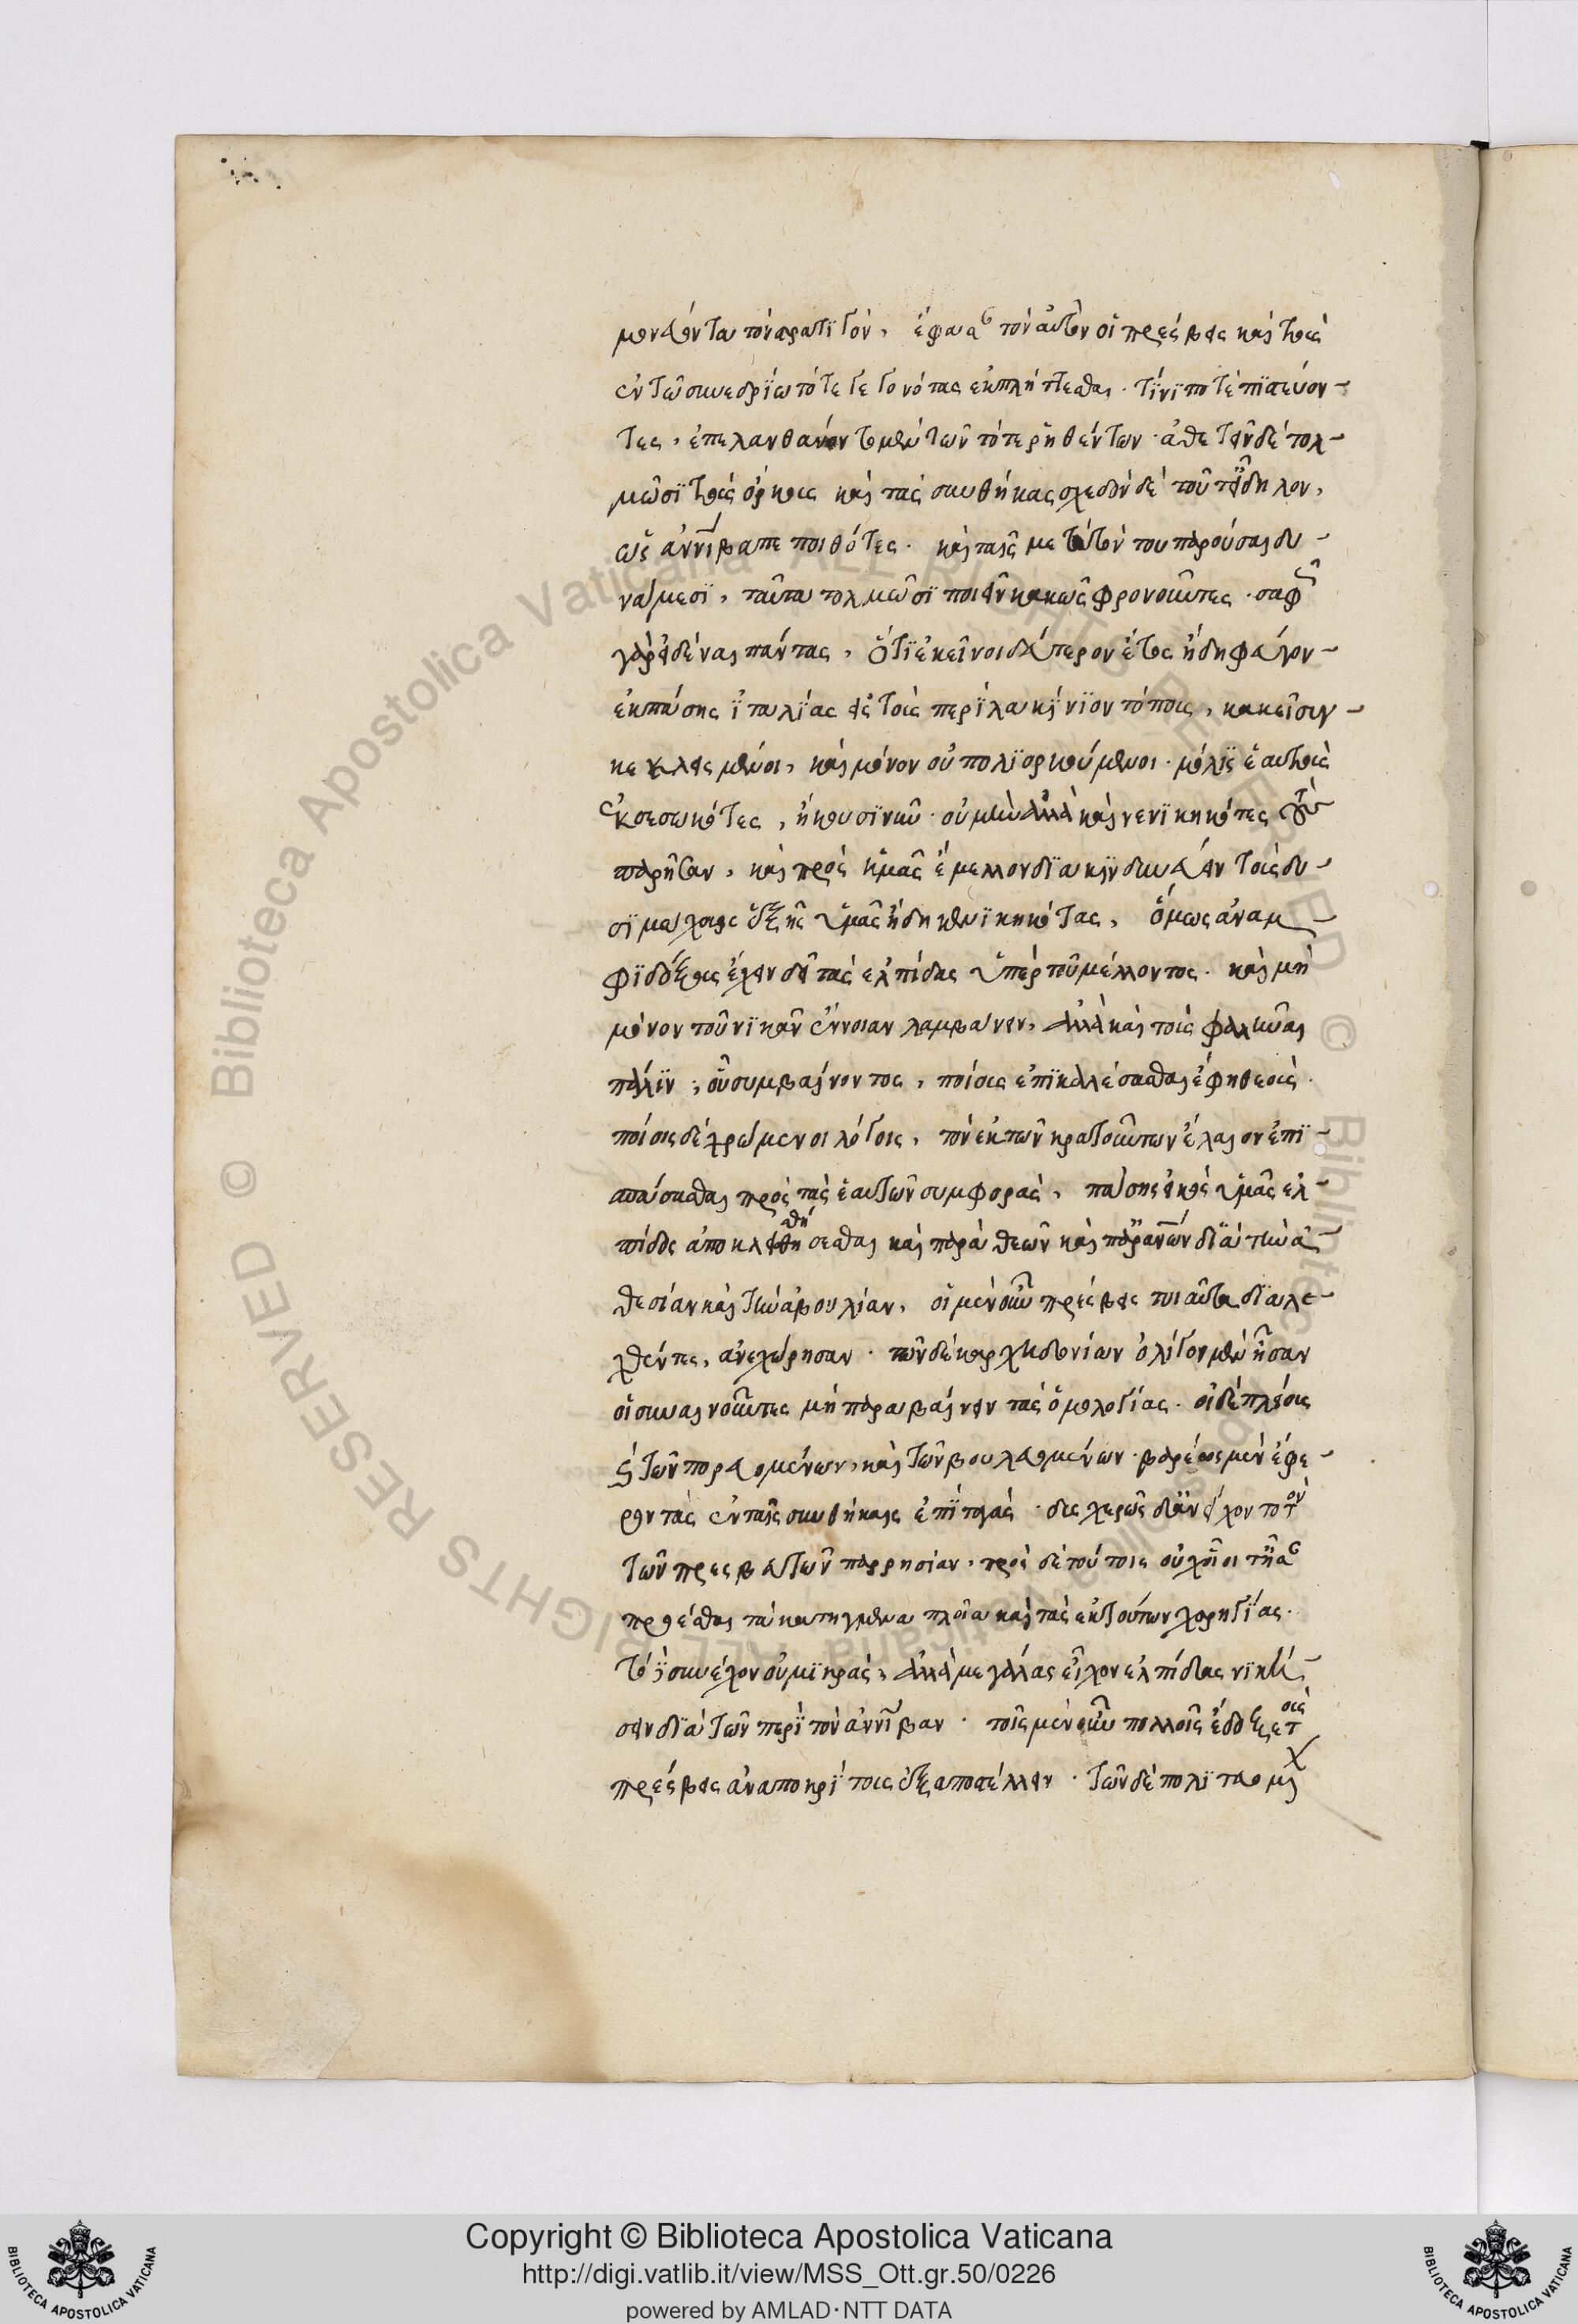 μονεύοντα τὸν στρατϊγὸν, ἔφασαν τὸν αὐτὸν οἱ πρέσβεις καὶ τοὺς
ἐν τῶ συνεδρίω τότε γεγονότας ἐκπλήττεσθαι. τίνϊ ποτὲ πϊστεύον-
τες, ἐπελανθάνοντο μὲν τῶν τότε ῥηθέντων. ἀθετεῖν δὲ τολ-
μῶσϊ τοὺς ὅρκους καὶ τὰς συνθήκας σχεδὸν δὲ τοῦτ' εἶναι δῆλον,
ὡς ἀννίβα πεποιθότες. καὶ ταῖς μετ' αὐτὸν του παρούσαι δυ-
νάμεσϊ, ταῦτα τολμῶσϊ ποιεῖν κακῶς φρονοῦντες. σαφῶς
γὰρ εἰδέναι πάντας, ὅτϊ ἐκεῖνοι δεύτερον ἔτος ἤδη φεύγον-
ἐκπάσης ἰταλΐας εἰς τοὺς περὶ λακίνϊον τόπους, κἀκεῖ συγ-
κεκλεισμένοι, καὶ μόνον οὐ πολϊορκούμενοι. μόλϊς ἑαυτοὺς
ἐκσεσωκότες, ἥκουσϊ νῦν. οὐ μὴν ἀλλὰ καὶ νενϊκηκότες τῶν
παρῆσαν, καὶ πρὸς ἡμᾶς ἔμελλον δϊακϊνδυνεύειν τοὺς δυ-
σϊ μάχαις ἑξῆς ὑμᾶς ἤδη νενϊκηκότας, ὅμως ἀναμ-
φϊδόξους ἔχειν δεῖ τὰς ἐλπίδας ὑπὲρ τοῦ μέλλοντος. καὶ μὴ
μόνον τοῦ νϊκᾶν ἔννοιαν λαμβάνειν, ἀλλὰ καὶ τοὺς φαλῆναι
πάλϊν, οὗ συμβαίνοντος, ποίους ἐπϊκαλέσασθαι ἔφη θεοὺς.
ποίοις δὲ χρώμενοι λόγοις, τὸν ἐκ τῶν κρατούντων ἔλαιον ἐπϊ-
σπάσασθαι πρὸς τὰς ἑαυτῶν συμφορὰς, πάσης εἰκὸς ὑμᾶς ἐλ-
πίδος ἀποκλεισθήσεσθαι καὶ παρὰ θεῶν καὶ παρ' ἀνθρώπων δϊὰ τὴν ἀ-
θεσίαν καὶ τὴν ἀβουλίαν, οἱ μὲν οὖν πρέσβεις τοιαῦτα δϊαλε-
χθέντες, ἀνεχώρησαν. τῶν δὲ καρχηδονίων ὀλίγον μὲν ἦσαν
οἱ συναινοῦντες μὴ παραβαίνειν τὰς ὁμολογίας. οἱ δὲ πλείους
καὶ τῶν πορευομένων, καὶ τῶν βουλευομένων. βαρέως μὲν ἔφε-
ρον τὰς ἐν ταῖς συνθήκαις ἐπϊταγὰς. δυσχερῶς δ' ἀνεῖχοντο τὸν
τῶν πρεσβευτῶν παρρησίαν. πρὸς δὲ τούτοις οὐχ οἷοι τ' ἦσαν
προέσθαι τὰ κατηγμένα πλοῖα καὶ τὰς ἐκ τούτων χορηγΐας.
τό ϊ συνέχον οὐ μϊκρὰς, ἀλλὰ μεγάλας εἶχον ἐλπίδας νϊκή-
σειν δϊὰ τῶν περὶ τὸν ἀννίβαν. τοῖς μὲν οὖν πολλοῖς ἔδοξε τοὺς
πρέσβεις ἀναποκρΐτους ἐξαποστέλλειν. τῶν δὲ πολϊτευομ